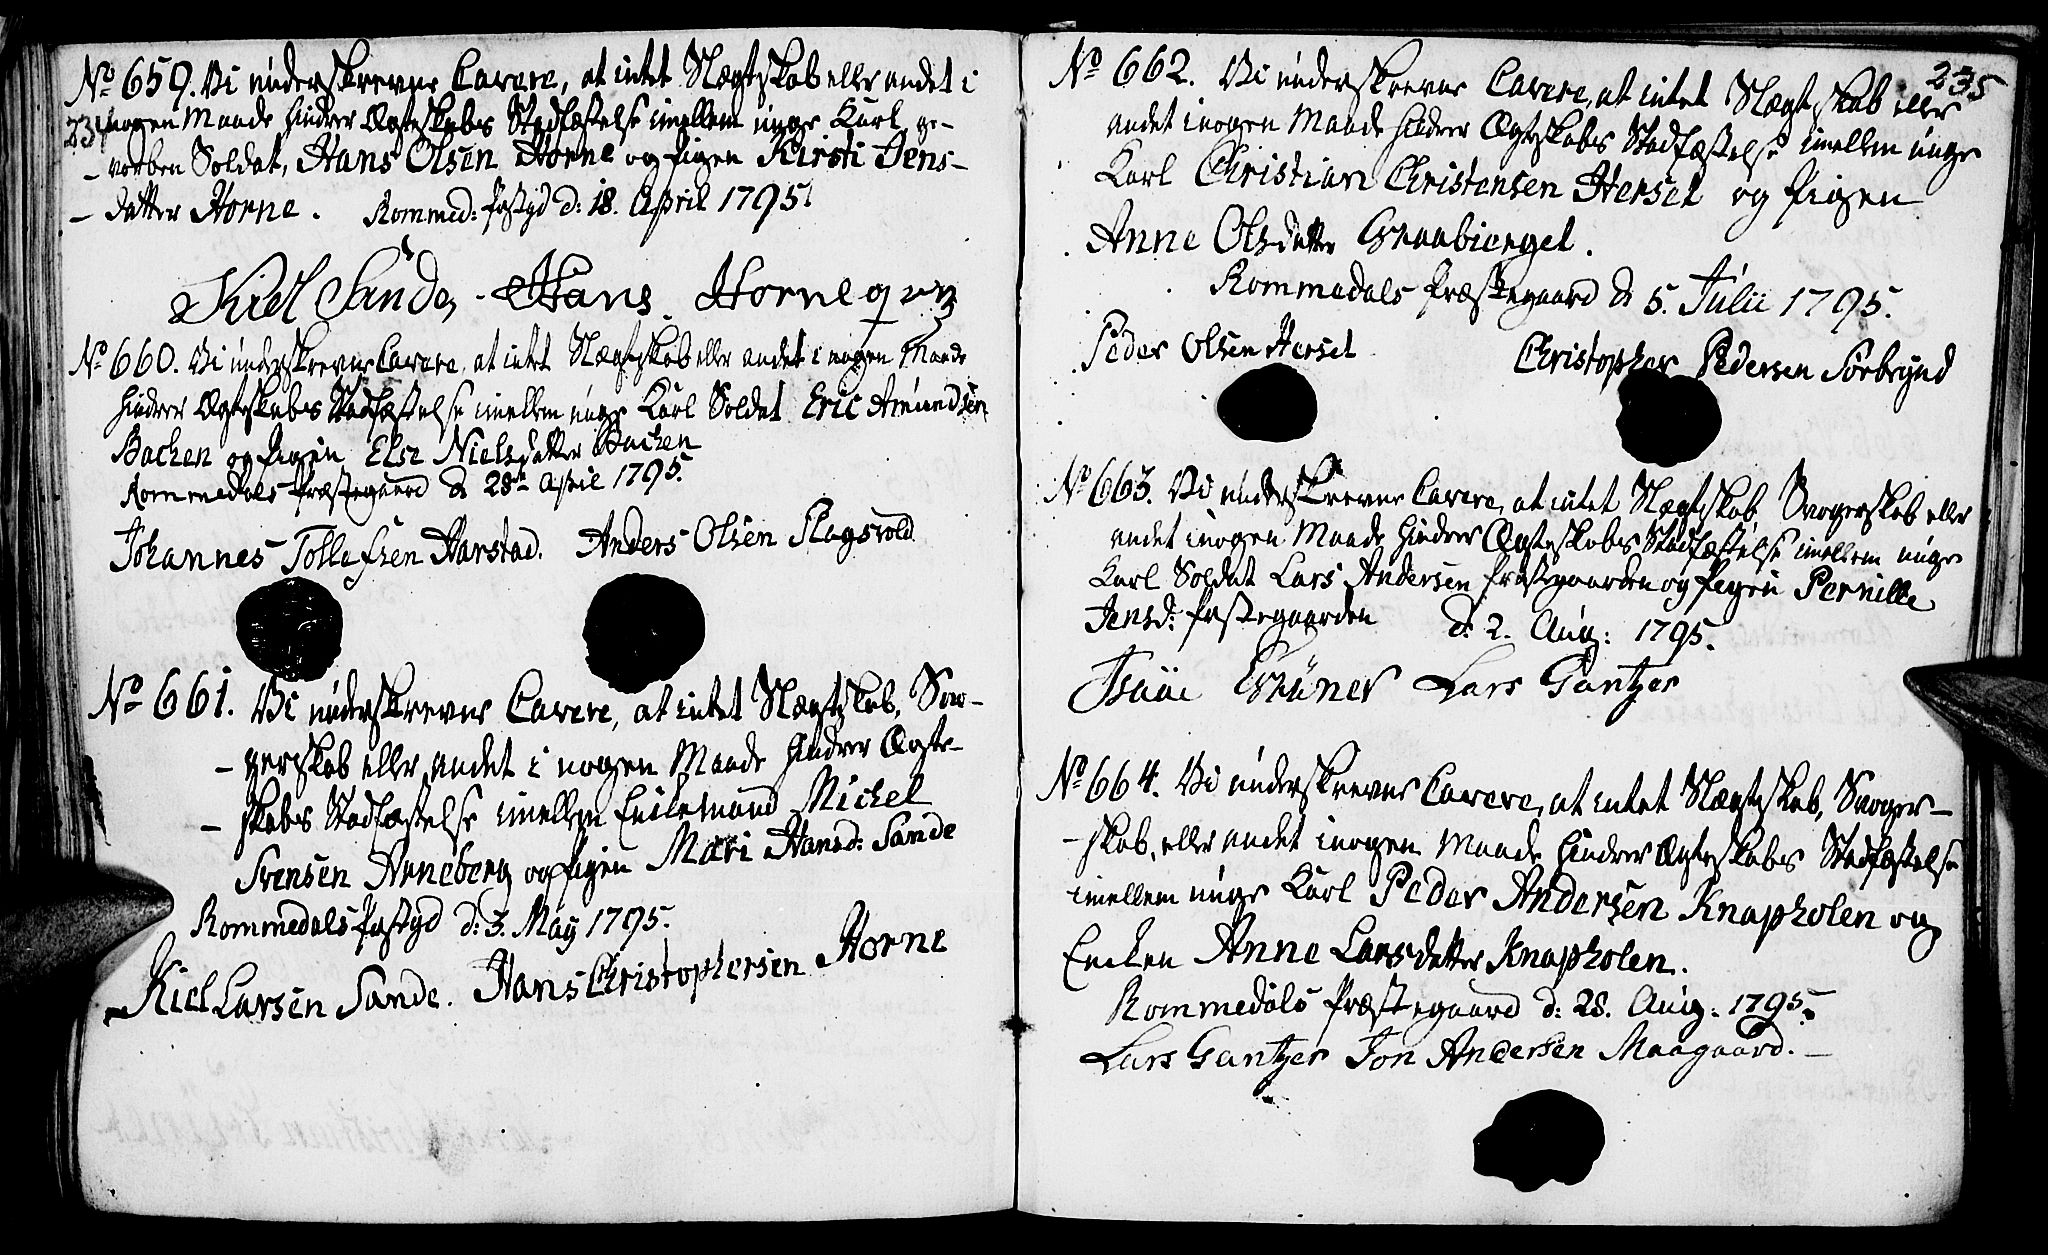 No 659. Vi underskrevne Cavere, at intet Slægtskab eller andet i
nogen Maade hindrer Ægteskabs Stadfæstelse imellem unge Karl ge-
- vorben Soldat, Hans Olsen Horne og Pigen Kirsti Jens-
- datter Horne. Rommed: Pæstgd d: 18. April 1795.
Kiel Sande, Hans Horne
No 660. Vi underskrevne Cavere, at intet Slægtskab eller andet i nogen Maade
hindrer Ægteskabs Stadfæstelse imellem unge Karl Soldat Eric Amundsen
Bachen og Pigen Else Nielsdatter Bachen
Rommedals Præstegaard d 28de April 1795.
Johannes Tollefsen Harstad. Anders Olsen Flagsvold
No 661. Vi underskrevne Cavere, at intet Slægtskab, Svo-
- gerskab eller andet i nogen Maade hindrer Ægte-
- skabs Stadfæstelse imellem Enkemand Michel
Svensen Arneberg og Pigen Mari Hansd: Sande
Rommedals Pæstgd d: 3. May 1795.
Kiel Larsen Sande. Hans Christophersen Horne
235
No 662. Vi underskrevne Cavere, at intet Slægtskab eller
andet i nogen Maade hindrer Ægteskabs Stadfæstelse imellem unge
Karl Christian Christensen Hersel og Pigen
Anne Olsdatter Graabierget.
Rommedals Præstegaard d 5. Julii 1795.
Peder Olsen Hersel Christopher Pedersen Sørbrynd
No 663. Vi underskrevne Cavere, at intet Slægtskab Svogerskab eller
andet i nogen Maade hindrer Ægteskabs Stadfæstelse imellem unge
Karl Soldat Lars Andersen Præstegaarden og Pigen Pernille
Jensd: Pæstegaarden d: 2. Aug: 1795.
Isaac Grüner Lars Gantzer
No 664. Vi underskrevne Cavere, at intet Slægtskab, Svoger-
- skab, eller andet i nogen Maade hindrer Ægteskabs Stadfæstelse
imellem unge Karl Peder Andersen Knapholen og
Enken Anne Larsdatter Knapholen.
Rommedals Præstegaard d: 28. Aug: 1795.
Lars Gantzer Jon Andersen Maagaard.